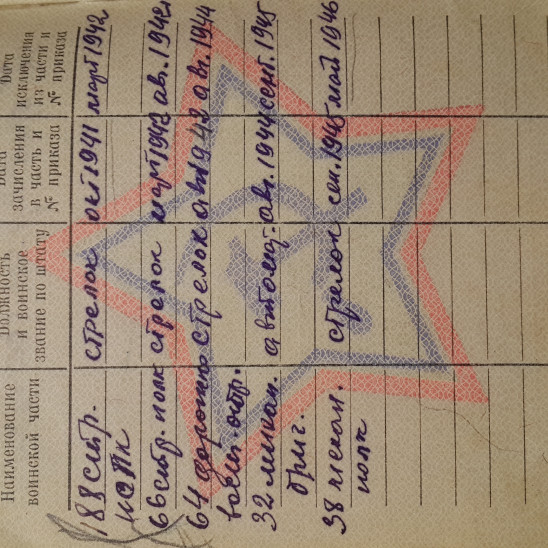 Наименование воинской части
Должность и воинское звание по штату
Дата зачисления в часть и № приказа
Дата исключения из части и № приказа
188 стр. стрелок окт 1941 март 1942
полк
66 стр. полк стрелок март 1942 авг. 1942
64 дорожно стрелок авг 1942 авг. 1944
32 авг. 1944 сент. 1945
бриг.
38 стрелок сен. 1945 май 1946
полк